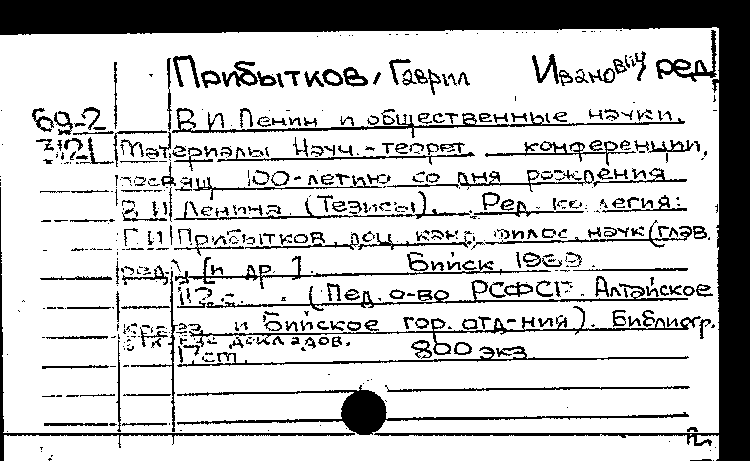 Прибытков, Гаврил Иванович, ред.
69-2 В И Ленин и общественные науки.
3121 Материалы науч.-теорет. конференции,
посвящ 100-летию со дня рождения
В И Ленина (Тезисы). Ред. коллегия:
Г И Прибытков, доц, канд филос. наук (глав.
ред) [и др.]. Бийск, 1969.
112 с. (Пед. о-во РСФСР. Алтайское
краев. и Бийское гор. отд-ния). Библиогр.
докладов.
17 ст. 800 экз